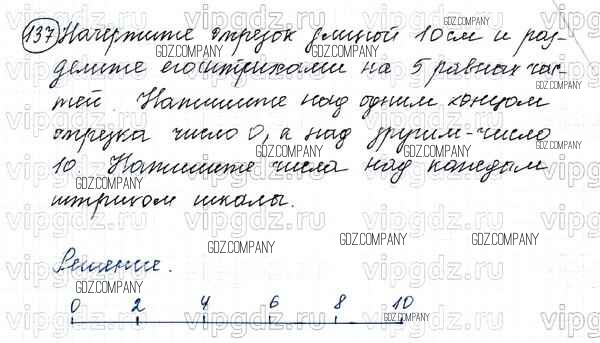 137 Начертите отрезок длиной 10 см и раз-
делите его штрихами на 5 равных час-
тей. Напишите над одним концом
отрезка число 0, а над другим - число
10. Напишите числа над каждым
штрихом шкалы.
Решение.
0 2 4 6 8 10
GDZ.COMPANY
vipgdz.ru